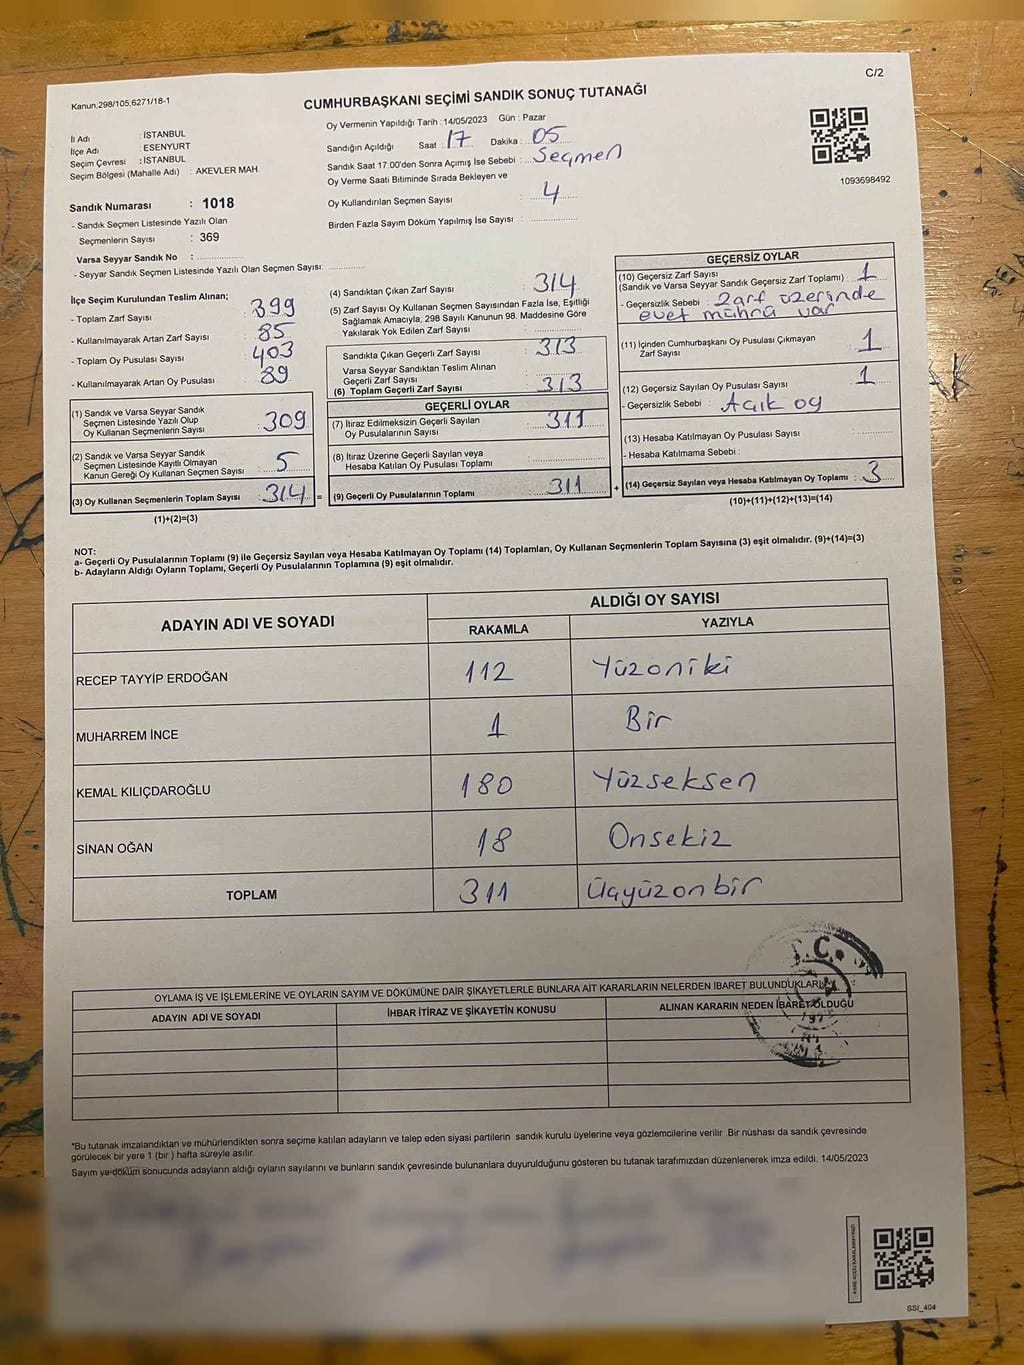 C/2
Kanun,298/105,6271/18-1
CUMHURBAŞKANI SEÇİMİ SANDIK SONUÇ TUTANAĞI
İl Adı : İSTANBUL
İlçe Adı : ESENYURT
Seçim Çevresi : İSTANBUL
Seçim Bölgesi (Mahalle Adı) : AKEVLER MAH
Oy Vermenin Yapıldığı Tarih :14/05/2023 Gün : Pazar
Sandığın Açıldığı Saat : 17 Dakika : 05
Sandık Saat 17:00'den Sonra Açımış İse Sebebi : Seçmen
Oy Verme Saati Bitiminde Sırada Bekleyen ve
Oy Kullandırılan Seçmen Sayısı : 4
Birden Fazla Sayım Döküm Yapılmış İse Sayısı :
1093698492
Sandık Numarası : 1018
- Sandık Seçmen Listesinde Yazılı Olan
Seçmenlerin Sayısı : 369
Varsa Seyyar Sandık No :
- Seyyar Sandık Seçmen Listesinde Yazılı Olan Seçmen Sayısı:
İlçe Seçim Kurulundan Teslim Alınan;
- Toplam Zarf Sayısı : 399
- Kullanılmayarak Artan Zarf Sayısı : 85
- Toplam Oy Pusulası Sayısı : 403
- Kullanılmayarak Artan Oy Pusulası : 89
(1) Sandık ve Varsa Seyyar Sandık
Seçmen Listesinde Yazılı Olup
Oy Kullanan Seçmenlerin Sayısı : 309
(2) Sandık ve Varsa Seyyar Sandık
Seçmen Listesinde Kayıtlı Olmayan
Kanun Gereği Oy Kullanan Seçmen Sayısı : 5
(3) Oy Kullanan Seçmenlerin Toplam Sayısı : 314 =
(1)+(2)=(3)
(4) Sandıktan Çıkan Zarf Sayısı : 314
(5) Zarf Sayısı Oy Kullanan Seçmen Sayısından Fazla İse, Eşitliği
Sağlamak Amacıyla, 298 Sayılı Kanunun 98. Maddesine Göre
Yakılarak Yok Edilen Zarf Sayısı :
Sandıkta Çıkan Geçerli Zarf Sayısı : 313
Varsa Seyyar Sandıktan Teslim Alınan
Geçerli Zarf Sayısı :
(6) Toplam Geçerli Zarf Sayısı : 313
GEÇERLİ OYLAR
(7) İtiraz Edilmeksizin Geçerli Sayılan
Oy Pusulalarının Sayısı : 311
(8) İtiraz Üzerine Geçerli Sayılan veya
Hesaba Katılan Oy Pusulası Toplamı :
(9) Geçerli Oy Pusulalarının Toplamı : 311 +
GEÇERSİZ OYLAR
(10) Geçersiz Zarf Sayısı
(Sandık ve Varsa Seyyar Sandık Geçersiz Zarf Toplamı) : 1
- Geçersizlik Sebebi : Zarf üzerinde
evet mührü var
(11) İçinden Cumhurbaşkanı Oy Pusulası Çıkmayan
Zarf Sayısı : 1
(12) Geçersiz Sayılan Oy Pusulası Sayısı : 1
- Geçersizlik Sebebi : Açık oy
(13) Hesaba Katılmayan Oy Pusulası Sayısı :
- Hesaba Katılmama Sebebi :
(14) Geçersiz Sayılan veya Hesaba Katılmayan Oy Toplamı : 3
(10)+(11)+(12)+(13)=(14)
NOT:
a- Geçerli Oy Pusulalarının Toplamı (9) ile Geçersiz Sayılan veya Hesaba Katılmayan Oy Toplamı (14) Toplamları, Oy Kullanan Seçmenlerin Toplam Sayısına (3) eşit olmalıdır. (9)+(14)=(3)
b- Adayların Aldığı Oyların Toplamı, Geçerli Oy Pusulalarının Toplamına (9) eşit olmalıdır.
ADAYIN ADI VE SOYADI
ALDIĞI OY SAYISI
RAKAMLA YAZIYLA
RECEP TAYYİP ERDOĞAN 112 Yüzoniki
MUHARREM İNCE 1 Bir
KEMAL KILIÇDAROĞLU 180 Yüzseksen
SİNAN OĞAN 18 Onsekiz
TOPLAM 311 Üçyüzonbir
T.C.
OYLAMA İŞ VE İŞLEMLERİNE VE OYLARIN SAYIM VE DÖKÜMÜNE DAİR ŞİKAYETLERLE BUNLARA AİT KARARLARIN NELERDEN İBARET BULUNDUKLARI
ADAYIN ADI VE SOYADI İHBAR İTİRAZ VE ŞİKAYETİN KONUSU ALINAN KARARIN NEDEN İBARET OLDUĞU
*Bu tutanak imzalandıktan ve mühürlendikten sonra seçime katılan adayların ve talep eden siyasi partilerin sandık kurulu üyelerine veya gözlemcilerine verilir. Bir nüshası da sandık çevresinde
görülecek bir yere 1 (bir ) hafta süreyle asılır.
Sayım ve döküm sonucunda adayların aldığı oyların sayılarını ve bunların sandık çevresinde bulunanlara duyurulduğunu gösteren bu tutanak tarafımızdan düzenlenerek imza edildi. 14/05/2023
KARE KODU KARALAMAYINIZ!
SSI_404